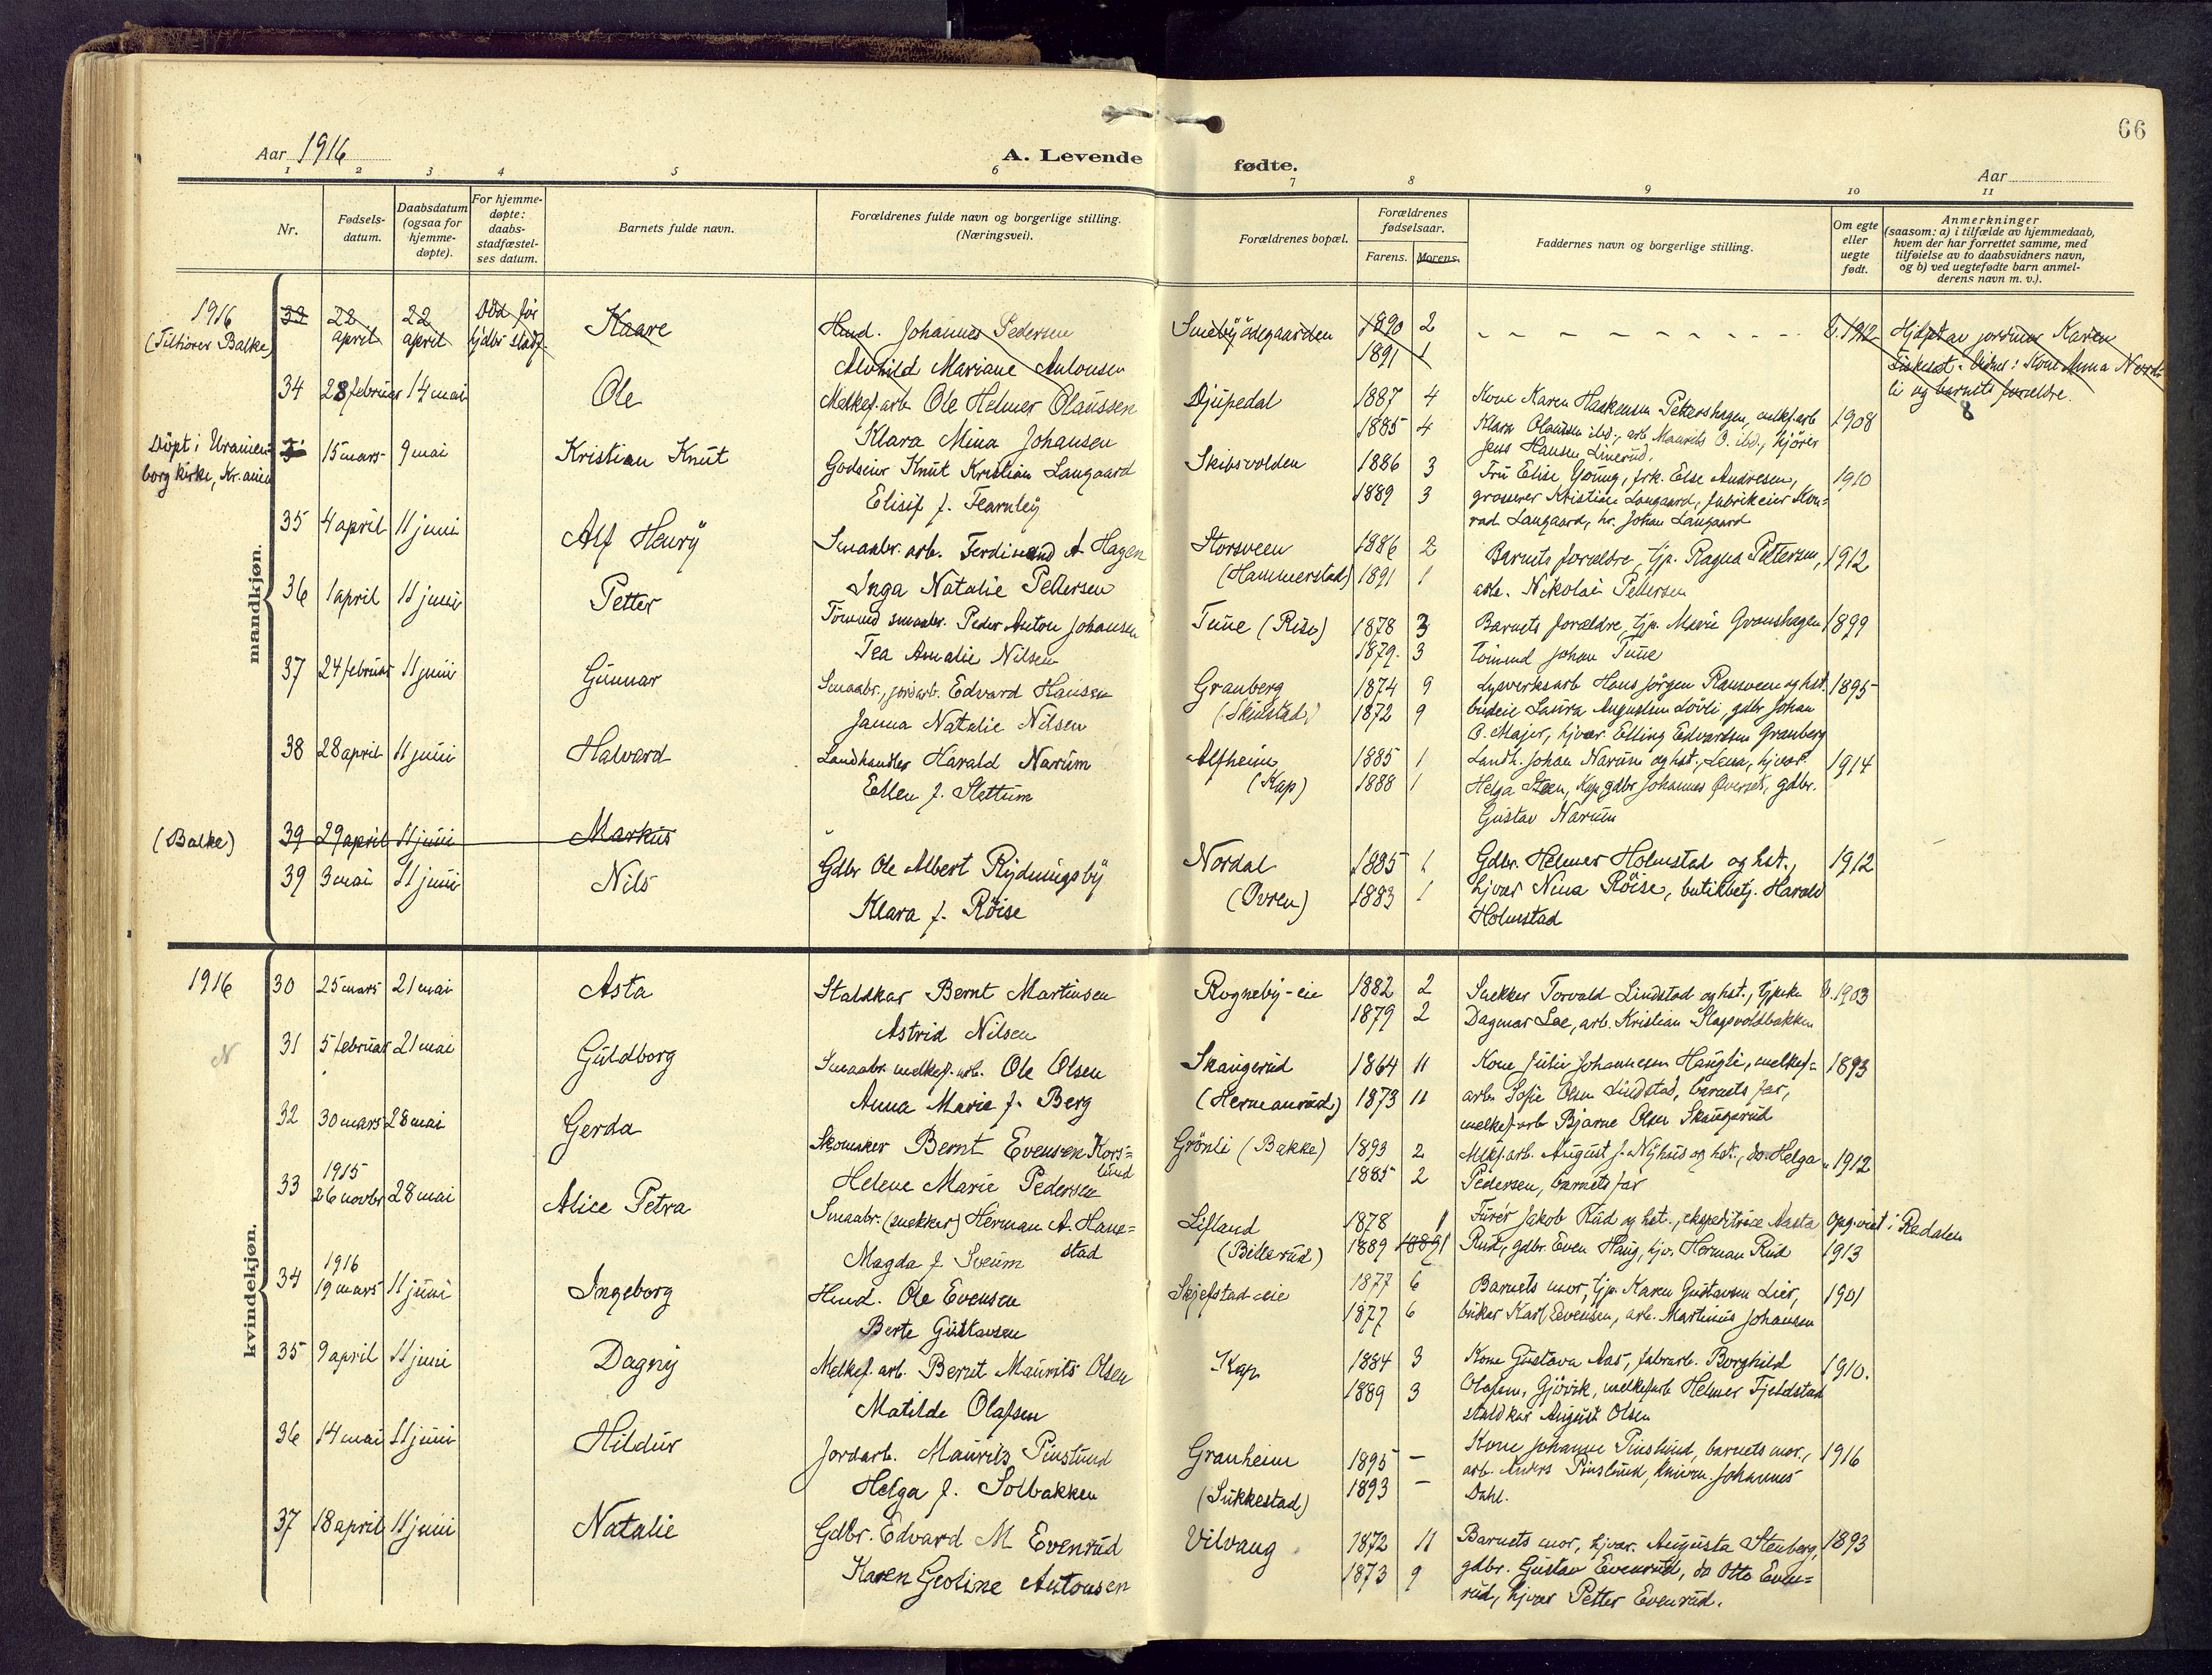 66
Aar 1916
A. Levende
fødte.
Aar
1 2 3 4 5 6 7 8 9 10 11
Nr.
Fødsels-
datum.
Daabsdatum
(ogsaa for
hjemme-
døpte).
For hjemme-
døpte:
daabs-
stadfæstel-
ses datum.
Barnets fulde navn.
Forældrenes fulde navn og borgerlige stilling.
(Næringsvei).
Forældrenes bopæl.
Forældrenes
fødselsaar.
Farens. Morens.
Faddernes navn og borgerlige stilling.
Om egte
eller
uegte
født.
Anmerkninger
(saasom: a) i tilfælde av hjemmedaab,
hvem der har forrettet samme, med
tilføielse av to daabsvidners navn,
og b) ved uegtefødte barn anmel-
derens navn m. v.).
mandkjøn.
1916
(Tilhører Balke)
33 22 april 22 april Död før hjdbs stadf.
Kaare
Hmd. Johannes Pedersen
Alvhild Mariane Antonsen
Smebyödegaarden
1890 2
1891 1
1912
Hjdøpt av jordmor Karen
Fiskelöt. Vidner: Kone Anna Nord-
li og barnets forældre.
8
34 28 februar 14 mai
Ole
Melkef. arb. Ole Helmer Olaussen
Klara Mina Johansen
Djupedal
1887 4
1885 4
Kone Karen Haakensen Pettershagen, melkf.arb
Klara Olaussen ibd., arb. Maurits O. ibd., kjörer
Jens Hansen Linerud.
1908
Döpt i Uranien-
borg kirke, Kr.ania
15 mars 9 mai
Kristian Knut
Godseier Knut Kristian Langaard
Elisif f. Fearnley
Skibsvolden
1886 3
1889 3
Fru Elise Young, frk. Else Andresen,
grosserer Kristian Langaard, fabrikeier Kon-
rad Langaard, hr. Johan Langaard
1910
35 4 april 11 juni
Alf Henry
Smaabr. arb. Ferdinand A. Hagen
Inga Natalie Pettersen
Storsveen
(Hammerstad)
1886 2
1891 1
Barnets forældre, tjp. Ragna Pettersen,
arb. Nikolai Pettersen
1912
36 1 april 11 juni
Petter
Tömmd smaabr. Peder Anton Johansen
Tea Amalie Nilsen
Tune (Rise)
1878 3
1879 3
Barnets forældre, tjp. Marie Granshagen
tömmd Johan Tune
1899
37 24 februar 11 juni
Gunnar
Smaabr., jordarb. Edvard Hansen
Janna Natalie Nilsen
Granberg
(Skiustad)
1874 9
1872 9
Lysverksarb Hans Jörgen Ramsveen og hst.
budeie Laura Augustsen Lövli, gdbr Johan
O. Majer, hjvær. Elling Edvardsen Granberg
1895
38 28 april 11 juni
Halvard
Landhandler Harald Narum
Ellen f. Slettum
Alfheim
(Kap)
1885 1
1888 1
Landh. Johan Narum og hst., Lena, hjvær.
Helga Steen, Kap, gdbr Johannes Överseth, gdbr.
Gustav Narum
1914
(Balke)
39 29 april 11 juni
Markus
39 3 mai 11 juni
Nils
Gdbr Ole Albert Rydningsby
Klara f. Röise
Nordal
(Ovren)
1885 1
1883 1
Gdbr. Helmer Holmstad og hst.,
hjvær Nina Röise, butikbetj. Harald
Holmstad
1912
kvindekjøn.
1916
30 25 mars 21 mai
Asta
Staldkar Bernt Martinsen
Astrid Nilsen
Rogneby-eie
1882 2
1879 2
Snekker Torvald Lindstad og hst., tjpike
Dagmar Lae, arb. Kristian Slagsvoldbakken
1903
N
31 5 februar 21 mai
Guldborg
Smaabr. melkef. arb. Ole Olsen
Anna Marie f. Berg
Skaugerud
(Hermanrud)
1864 11
1873 11
Kone Julie Johannesen Haugli, melkef=
arb. Sofie Olsen Lindstad, barnets far,
melkef. arb Bjarne Olsen Skaugerud
1893
32 30 mars 28 mai
Gerda
Skomaker Bernt Evensen Kors=
lund
Helene Marie Pedersen
Grönli (Bakke)
1893 2
1885 2
Melkf. arb. August J. Nyhus og hst., do. Helga
Pedersen, barnets far
1912
33 1915 26 novbr 28 mai
Alice Petra
Smaabr. (snekker) Herman A. Hane=
stad
Magda f. Sveum
Lifland
(Billerud)
1878 1
1889 1
Furér Jakob Rud og hst., ekspeditrice Aasta
Rud, gdbr. Even Haug, hjv. Herman Rud
Opg. viet i Redalen
1913
34 1916 19 mars 11 juni
Ingeborg
Hmd. Ole Evensen
Berte Gustavsen
Skjefstad-eie
1877 6
1877 6
Barnets mor, tjp. Karen Gustavsen Lier,
bruker Karl Evensen, arb. Martinius Johansen
1901
35 9 april 11 juni
Dagny
Melkef. arb. Bernt Maurits Olsen
Matilde Olafsen
Kap
1884 3
1889 3
Kone Gustava Aas, fabrarb. Borghild
Olafsen, Gjövik, melkef.arb Helmer Fjeldstad
staldkar August Olsen
1910.
36 14 mai 11 juni
Hildur
Jordarb. Maurits Pinslund
Helga f. Solbakken
Granheim
(Sukkestad)
1895 -
1893 -
Kone Johanne Pinslund, barnets mor,
arb. Anders Pinslund, Johannes
Dahl.
1916
37 18 april 11 juni
Natalie
Gdbr. Edvard M Evenrud
Karen Geoline Antonsen
Vilvang
1872 11
1873 9
Barnets mor, hjvær. Augusta Stenberg,
gdbr. Gustav Evenrud, do Otto Even=
rud, hjvær Petter Evenrud.
1893